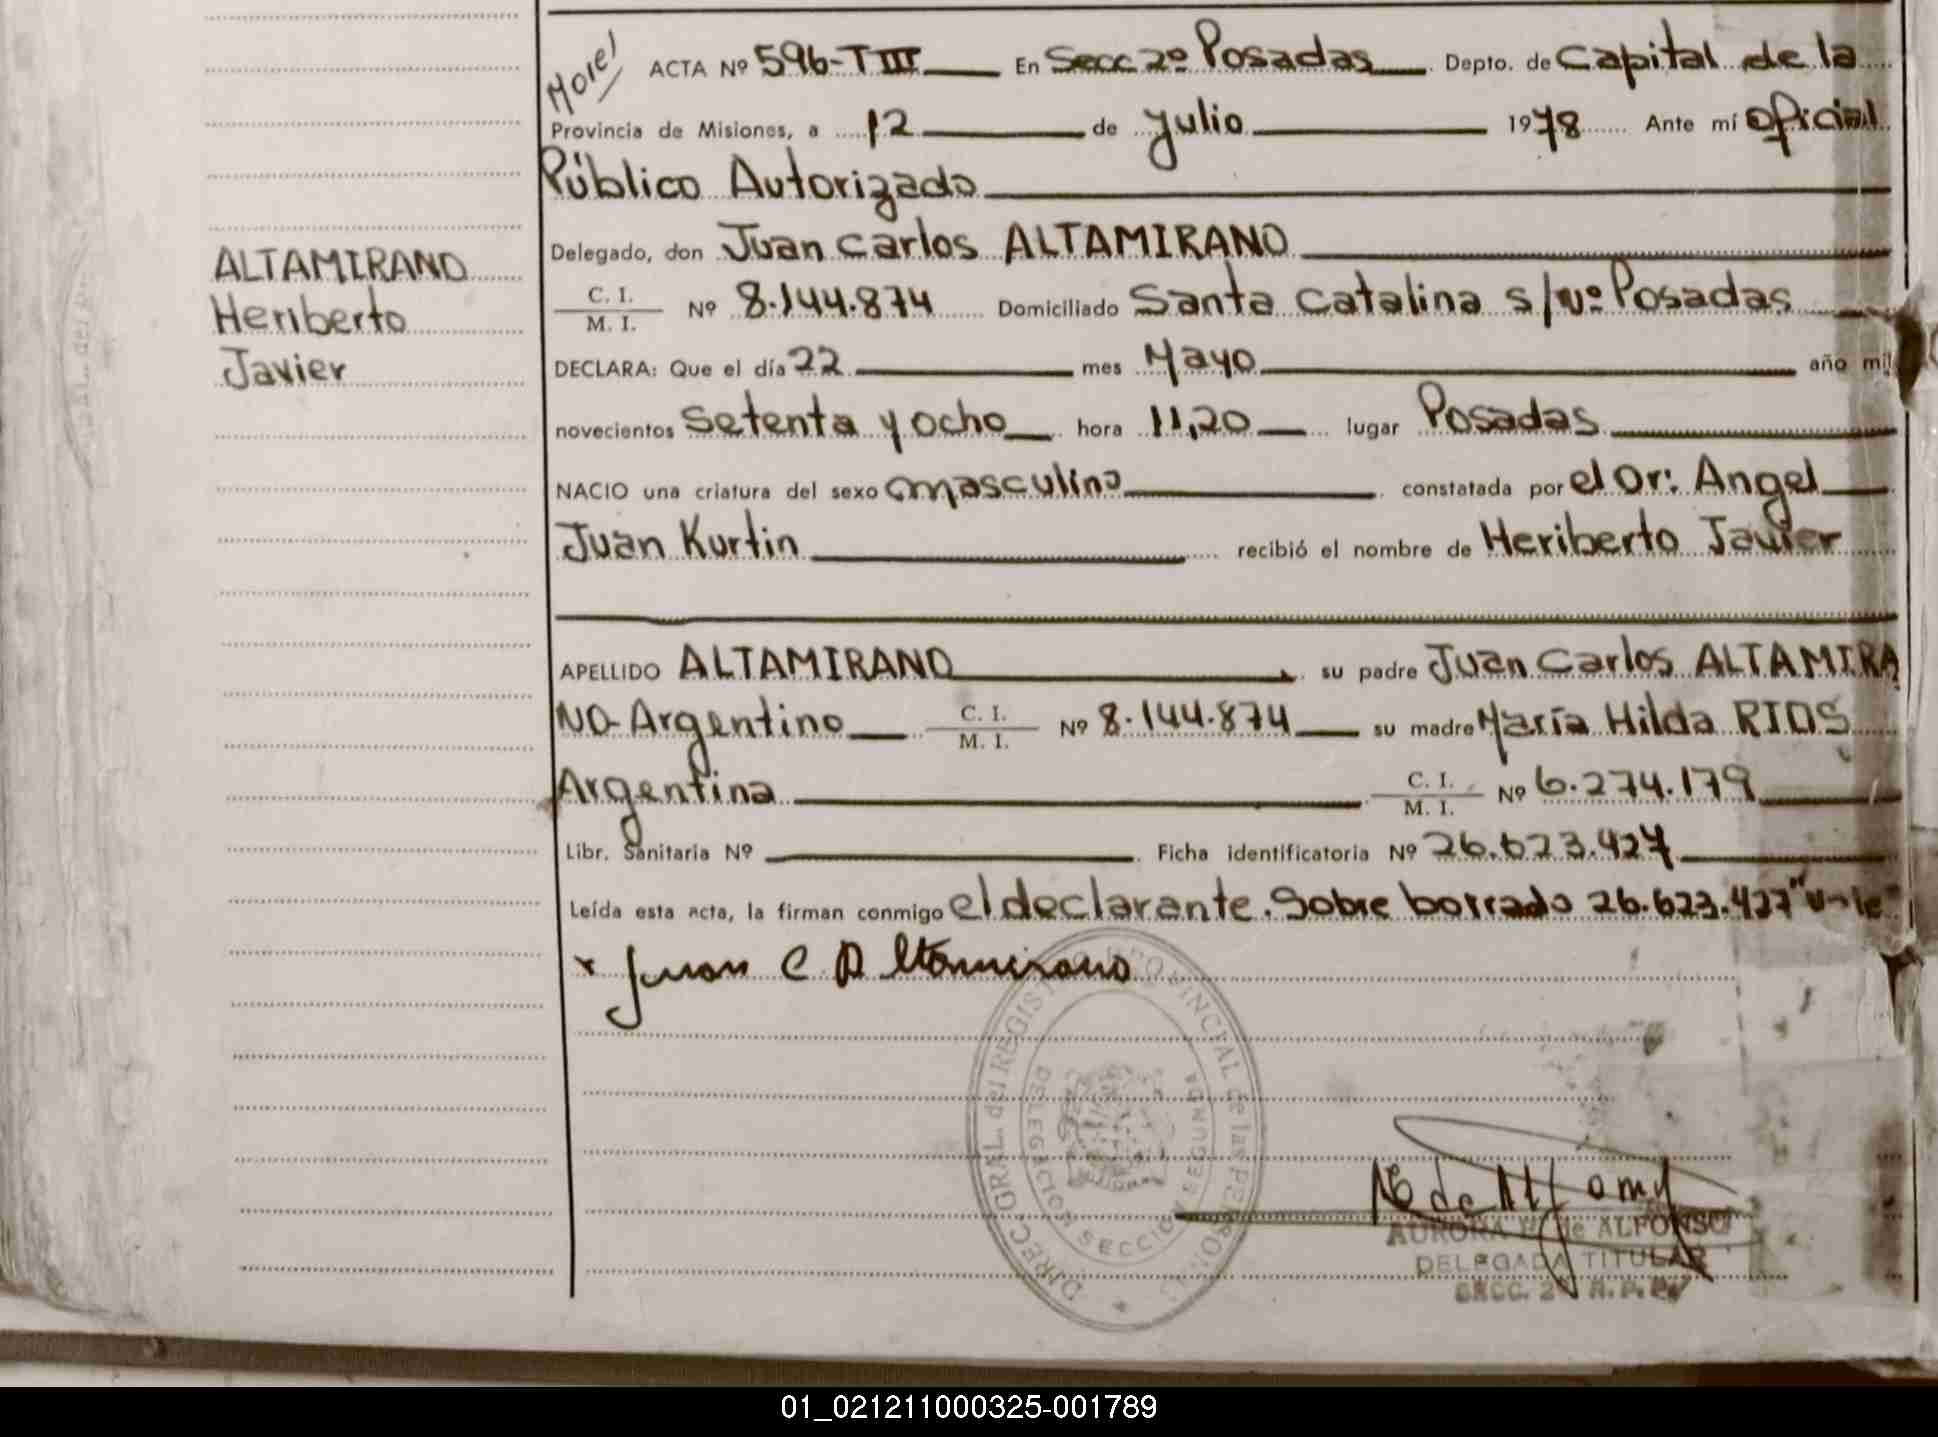 Morel
ACTA Nº 596-T III En Secc 2º Posadas Depto. de Capital de la
Provincia de Misiones, a 12 de Julio 1978 Ante mí Oficial
Público Autorizado
Delegado, don Juan Carlos ALTAMIRANO
C. I.
M. I. Nº 8.144.874 Domiciliado Santa Catalina s/nº Posadas
DECLARA: Que el día 22 mes Mayo año mil
novecientos Setenta y ocho hora 11,20 lugar Posadas
NACIO una criatura del sexo masculino constatada por el Dr: Angel
Juan Kurtin recibió el nombre de Heriberto Javier
APELLIDO ALTAMIRANO su padre Juan Carlos ALTAMIRA
NO-Argentino C. I.
M. I. Nº 8.144.874 su madre María Hilda RIOS
Argentina C. I.
M. I. Nº 6.274.179
Libr. Sanitaria Nº Ficha identificatoria Nº 26.623.427
Leída esta acta, la firman conmigo el declarante. Sobre borrado 26.623.427 "vale"
x Juan C Altamirano
ALTAMIRANO
Heriberto
Javier
DIREC. GRAL. del REGISTRO PROVINCIAL de las PERSONAS
DELEGACION SECCION SEGUNDA
de ALFONSO
DELEGADA TITULAR
SECC. 2ª R.P.P.
01_021211000325-001789